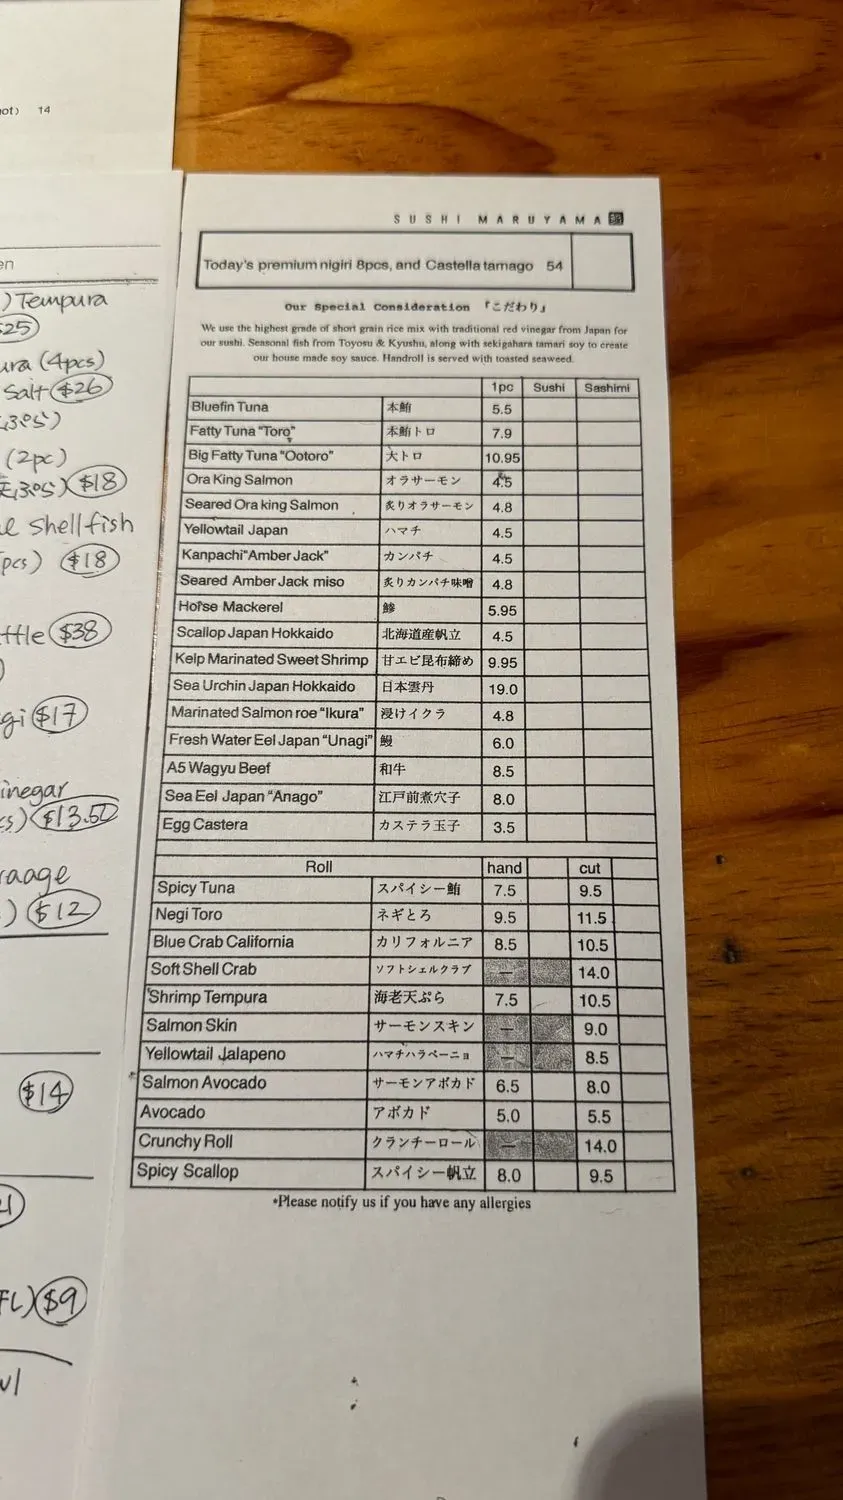 14
en
) Tempura
$25
ura (4pcs)
Salt $26
(2pc)
$18
shellfish
pcs) $18
ttle $38
gi $17
inegar
cs) $13.50
raage
) $12
$14
$9
SUSHI MARUYAMA
Today's premium nigiri 8pcs, and Castella tamago 54
Our Special Consideration 「こだわり」
We use the highest grade of short grain rice mix with traditional red vinegar from Japan for
our sushi. Seasonal fish from Toyosu & Kyushu, along with sekigahara tamari soy to create
our house made soy sauce. Handroll is served with toasted seaweed.
1pc Sushi Sashimi
Bluefin Tuna 本鮪 5.5
Fatty Tuna "Toro" 本鮪トロ 7.9
Big Fatty Tuna "Ootoro" 大トロ 10.95
Ora King Salmon オラサーモン 4.5
Seared Ora king Salmon 炙りオラサーモン 4.8
Yellowtail Japan ハマチ 4.5
Kanpachi"Amber Jack" カンパチ 4.5
Seared Amber Jack miso 炙りカンパチ味噌 4.8
Horse Mackerel 鯵 5.95
Scallop Japan Hokkaido 北海道産帆立 4.5
Kelp Marinated Sweet Shrimp 甘エビ昆布締め 9.95
Sea Urchin Japan Hokkaido 日本雲丹 19.0
Marinated Salmon roe "Ikura" 浸けイクラ 4.8
Fresh Water Eel Japan "Unagi" 鰻 6.0
A5 Wagyu Beef 和牛 8.5
Sea Eel Japan "Anago" 江戸前煮穴子 8.0
Egg Castera カステラ玉子 3.5
Roll hand cut
Spicy Tuna スパイシー鮪 7.5 9.5
Negi Toro ネギとろ 9.5 11.5
Blue Crab California カリフォルニア 8.5 10.5
Soft Shell Crab ソフトシェルクラブ — 14.0
Shrimp Tempura 海老天ぷら 7.5 10.5
Salmon Skin サーモンスキン — 9.0
Yellowtail Jalapeno ハマチハラペーニョ — 8.5
Salmon Avocado サーモンアボカド 6.5 8.0
Avocado アボカド 5.0 5.5
Crunchy Roll クランチーロール — 14.0
Spicy Scallop スパイシー帆立 8.0 9.5
*Please notify us if you have any allergies